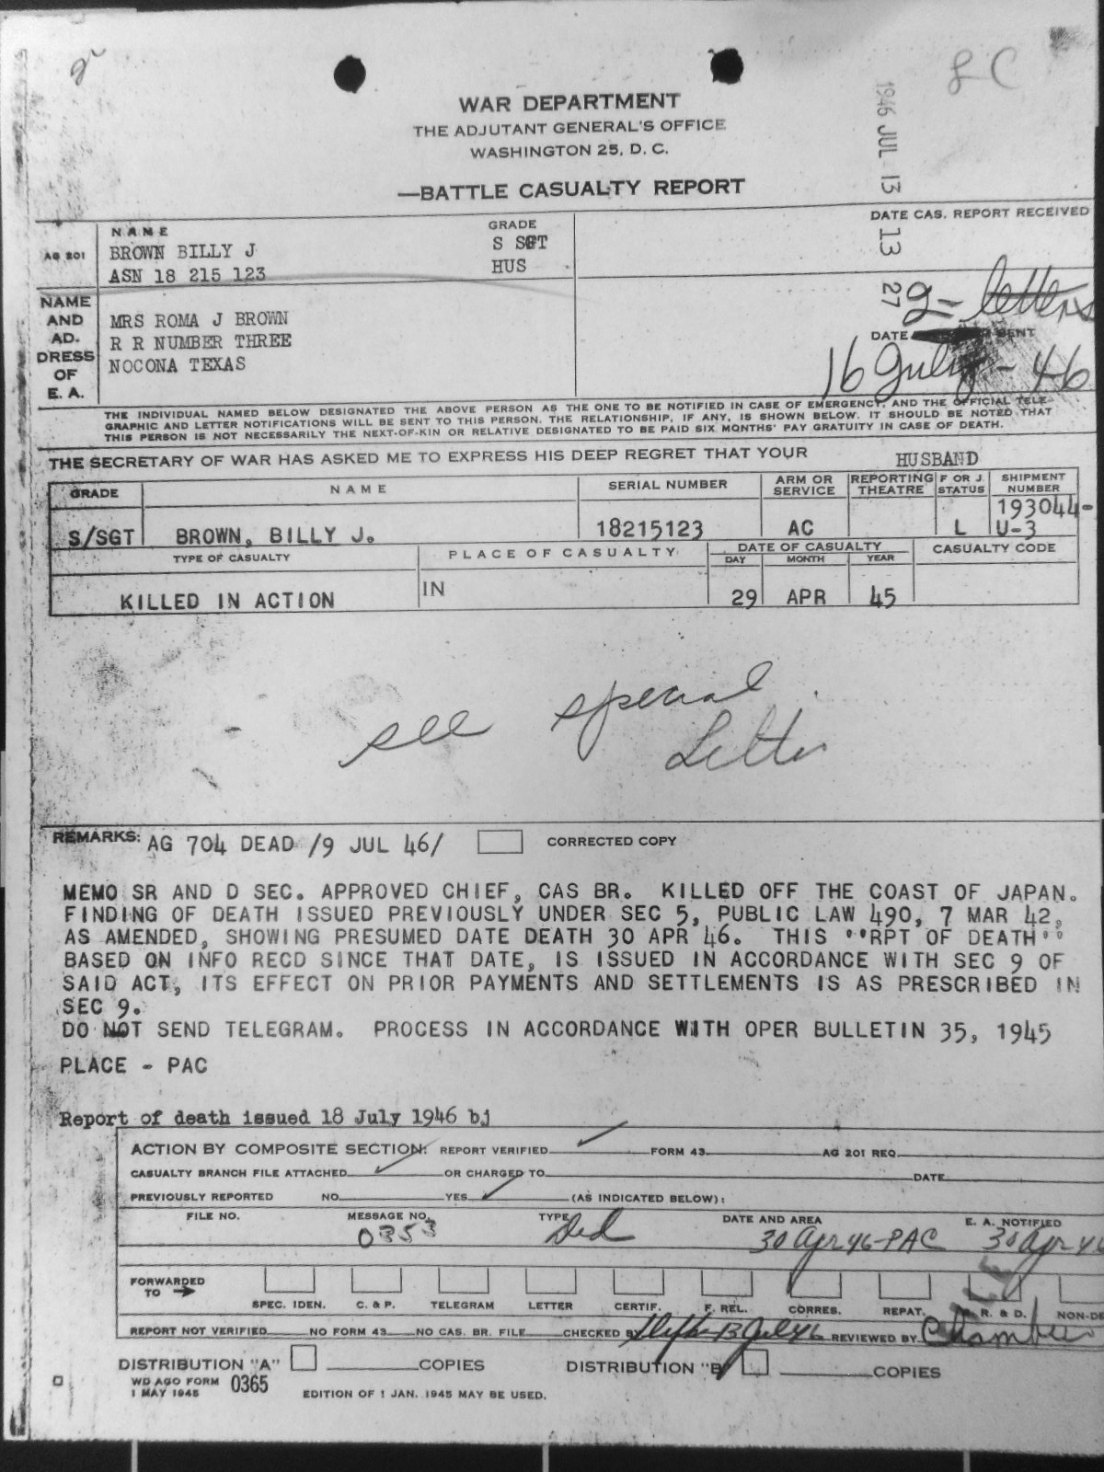 LC
WAR DEPARTMENT
THE ADJUTANT GENERAL'S OFFICE
WASHINGTON 25, D. C.
—BATTLE CASUALTY REPORT
1946 JUL 13 13 27
DATE CAS. REPORT RECEIVED
AG 201
NAME
BROWN BILLY J
ASN 18 215 123
GRADE
S SGT
HUS
NAME AND AD. DRESS OF E. A.
MRS ROMA J BROWN
R R NUMBER THREE
NOCONA TEXAS
2- letters
DATE SENT
16 July - 46
THE INDIVIDUAL NAMED BELOW DESIGNATED THE ABOVE PERSON AS THE ONE TO BE NOTIFIED IN CASE OF EMERGENCY, AND THE OFFICIAL TELE-
GRAPHIC AND LETTER NOTIFICATIONS WILL BE SENT TO THIS PERSON. THE RELATIONSHIP, IF ANY, IS SHOWN BELOW. IT SHOULD BE NOTED THAT
THIS PERSON IS NOT NECESSARILY THE NEXT-OF-KIN OR RELATIVE DESIGNATED TO BE PAID SIX MONTHS' PAY GRATUITY IN CASE OF DEATH.
THE SECRETARY OF WAR HAS ASKED ME TO EXPRESS HIS DEEP REGRET THAT YOUR HUSBAND
GRADE NAME SERIAL NUMBER ARM OR SERVICE REPORTING THEATRE F OR J STATUS SHIPMENT NUMBER
S/SGT BROWN, BILLY J. 18215123 AC L 193044-U-3
TYPE OF CASUALTY PLACE OF CASUALTY DATE OF CASUALTY CASUALTY CODE
DAY MONTH YEAR
KILLED IN ACTION IN 29 APR 45
see special
Letter
REMARKS: AG 704 DEAD /9 JUL 46/ CORRECTED COPY
MEMO SR AND D SEC. APPROVED CHIEF, CAS BR. KILLED OFF THE COAST OF JAPAN.
FINDING OF DEATH ISSUED PREVIOUSLY UNDER SEC 5, PUBLIC LAW 490, 7 MAR 42,
AS AMENDED, SHOWING PRESUMED DATE DEATH 30 APR 46. THIS ''RPT OF DEATH''
BASED ON INFO RECD SINCE THAT DATE, IS ISSUED IN ACCORDANCE WITH SEC 9 OF
SAID ACT, ITS EFFECT ON PRIOR PAYMENTS AND SETTLEMENTS IS AS PRESCRIBED IN
SEC 9.
DO NOT SEND TELEGRAM. PROCESS IN ACCORDANCE WITH OPER BULLETIN 35, 1945
PLACE - PAC
Report of death issued 18 July 1946 bj
ACTION BY COMPOSITE SECTION: REPORT VERIFIED FORM 43 AG 201 REQ.
CASUALTY BRANCH FILE ATTACHED OR CHARGED TO DATE
PREVIOUSLY REPORTED NO YES (AS INDICATED BELOW):
FILE NO. MESSAGE NO. TYPE DATE AND AREA E. A. NOTIFIED
0353 Ded 30 Apr 46-PAC 30 Apr 46
FORWARDED TO
SPEC. IDEN. C. & P. TELEGRAM LETTER CERTIF. F. REL. CORRES. REPAT. R. & D. NON-DE
REPORT NOT VERIFIED NO FORM 43 NO CAS. BR. FILE CHECKED BY 13 Jul 46 REVIEWED BY
DISTRIBUTION "A" COPIES DISTRIBUTION "B" COPIES
WD AGO FORM 0365
1 MAY 1945
EDITION OF 1 JAN. 1945 MAY BE USED.